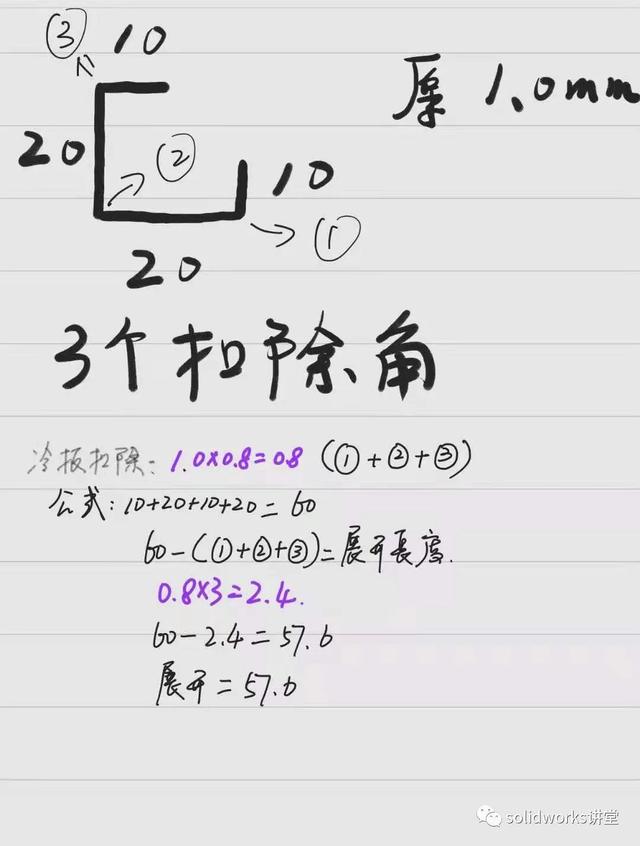 ③ 10
厚 1.0mm
20
②
10
①
20
3个扣除角
冷板扣除: 1.0×0.8=0.8 (①+②+③)
公式: 10+20+10+20=60
60-(①+②+③)=展开长度.
0.8×3=2.4.
60-2.4=57.6
展开=57.6
solidworks讲堂